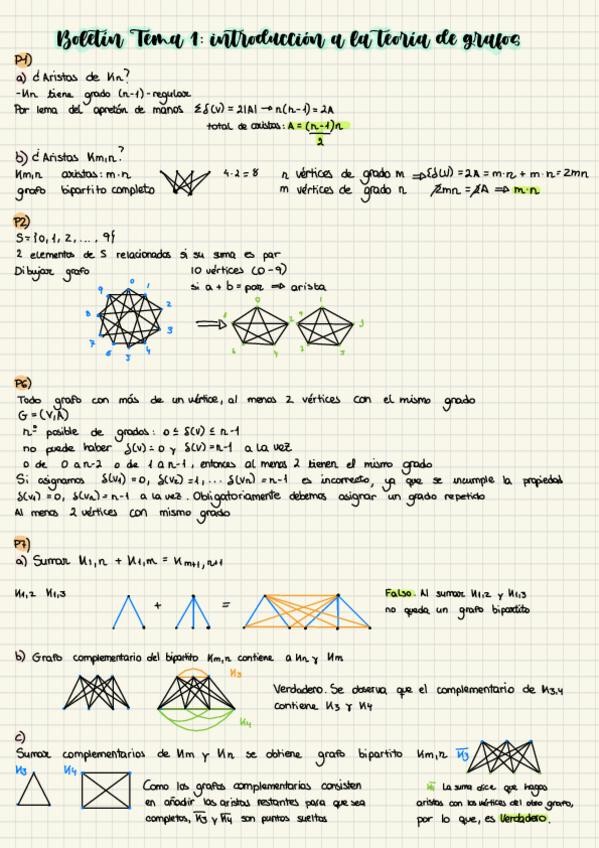 Boletín Tema 1: introducción a la teoría de grafos
P1)
a) ¿Aristas de Kn?
-Kn tiene grado (n-1)-regular
Por lema del apretón de manos Σδ(v) = 2|A| → n(n-1) = 2A
total de aristas: A = (n-1)n / 2
b) ¿Aristas Km,n?
Km,n aristas: m·n
grafo bipartito completo
4·2 = 8
n vértices de grado m ⇒ Σδ(v) = 2A = m·n + m·n = 2mn
m vértices de grado n 2mn = 2A ⇒ m·n
P2)
S = {0, 1, 2, ..., 9}
2 elementos de S relacionados si su suma es par
Dibujar grafo 10 vértices (0-9)
si a + b = par ⇒ arista
0 1 2 3 4 5 6 7 8 9
P6)
Todo grafo con más de un vértice, al menos 2 vértices con el mismo grado
G = (V,A)
nº posible de grados: 0 ≤ δ(v) ≤ n-1
no puede haber δ(v) = 0 y δ(v) = n-1 a la vez
o de 0 a n-2 o de 1 a n-1, entonces al menos 2 tienen el mismo grado
Si asignamos δ(v1) = 0, δ(v2) = 1, ... δ(vn) = n-1 es incorrecto, ya que se incumple la propiedad
δ(v1) = 0, δ(vn) = n-1 a la vez. Obligatoriamente debemos asignar un grado repetido
Al menos 2 vértices con mismo grado
P7)
a) Sumar K1,n + K1,m = Km+1,n+1
K1,2 K1,3
+ =
Falso. Al sumar K1,2 y K1,3
no queda un grafo bipartito
b) Grafo complementario del bipartito Km,n contiene a Kn y Km
K3
K4
Verdadero. Se observa que el complementario de K3,4
contiene K3 y K4
c)
Sumar complementarios de Km y Kn se obtiene grafo bipartito Km,n
K3 K4
Como los grafos complementarios consisten
en añadir las aristas restantes para que sea
completos, K̅3 y K̅4 son puntos sueltos
K̅3
La suma dice que hagas
aristas con los vértices del otro grafo,
por lo que, es Verdadero.